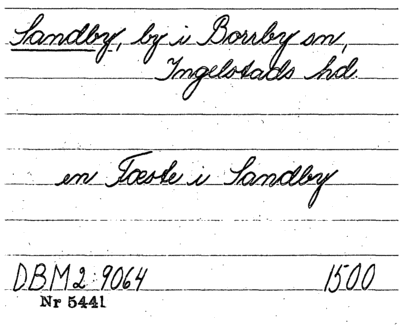 Sandby, by i Borrby sn,
Ingelstads hd.
en Fæste i Sandby
DBM 2:9064 1500
Nr 5441